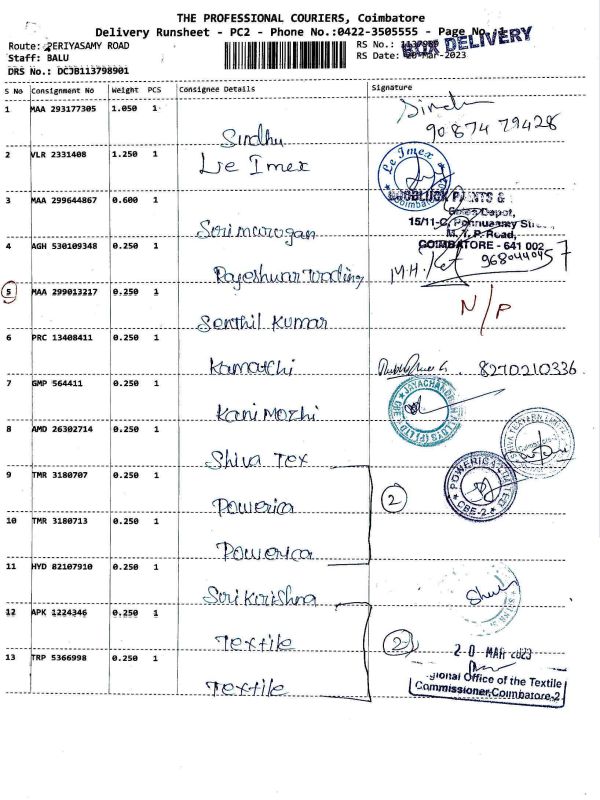 THE PROFESSIONAL COURIERS, Coimbatore
Delivery Runsheet - PC2 - Phone No.:0422-3505555 - Page No.
BOX DELIVERY
Route: PERIYASAMY ROAD RS No.:
Staff: BALU RS Date: 20-Mar-2023
DRS No.: DCJB113798901
S No Consignment No Weight PCS Consignee Details Signature
1 MAA 293177305 1.050 1
Sindhu
90874 79428
2 VLR 2331408 1.250 1
Le Imex
Le Imex
Coimbatore
3 MAA 299644867 0.600 1
GOODLUCK PAINTS &
Sales Depot,
15/11-C, Ponnusamy Street,
M. T. P. Road,
COIMBATORE - 641 002
Sorimurogan
4 AGH 530109348 0.250 1
M.H.
9680440457
Rajeshwar Trading
5 MAA 299013217 0.250 1
N/P
Senthil Kumar
6 PRC 13408411 0.250 1
Kamatchi
8270210336
7 GMP 564411 0.250 1
Kani Mozhi
8 AMD 26302714 0.250 1
Shiva Tex
9 TMR 3180707 0.250 1
Powerica
2
CBE-2
10 TMR 3180713 0.250 1
Powerica
11 HYD 82107910 0.250 1
Sori Krishna
12 APK 1224346 0.250 1
Textile
2
20 MAR 2023
13 TRP 5366998 0.250 1
Textile
gional Office of the Textile
Commissioner, Coimbatore-2